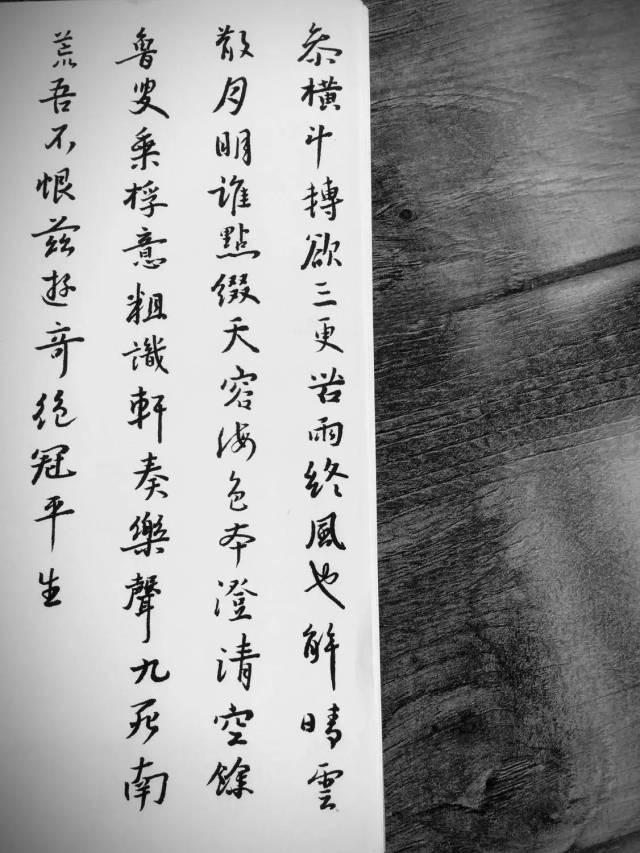 參橫斗轉欲三更苦雨終風也解晴雲
散月明誰點綴天容海色本澄清空餘
魯叟乘桴意粗識軒奏樂聲九死南
荒吾不恨茲遊奇絕冠平生